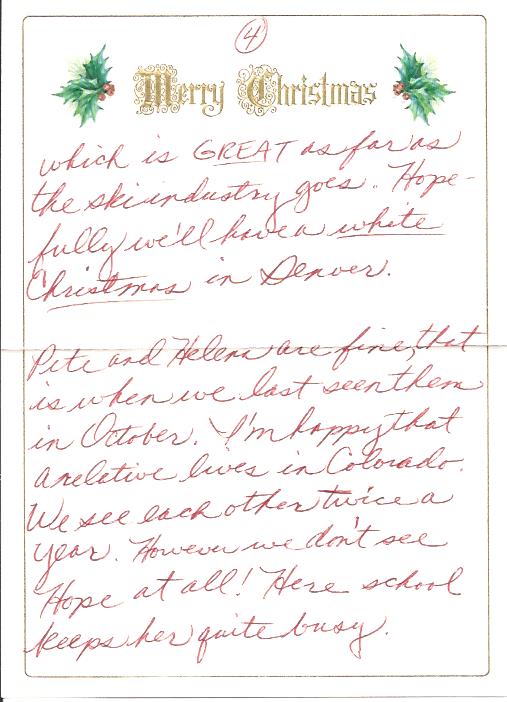 4
Merry Christmas
which is GREAT as far as
the ski industry goes. Hope-
fully we'll have a white
Christmas in Denver.
Pete and Helena are fine, that
is when we last seen them
in October. I'm happy that
a relative lives in Colorado.
We see each other twice a
year. However we don't see
Hope at all! Here school
keeps her quite busy.